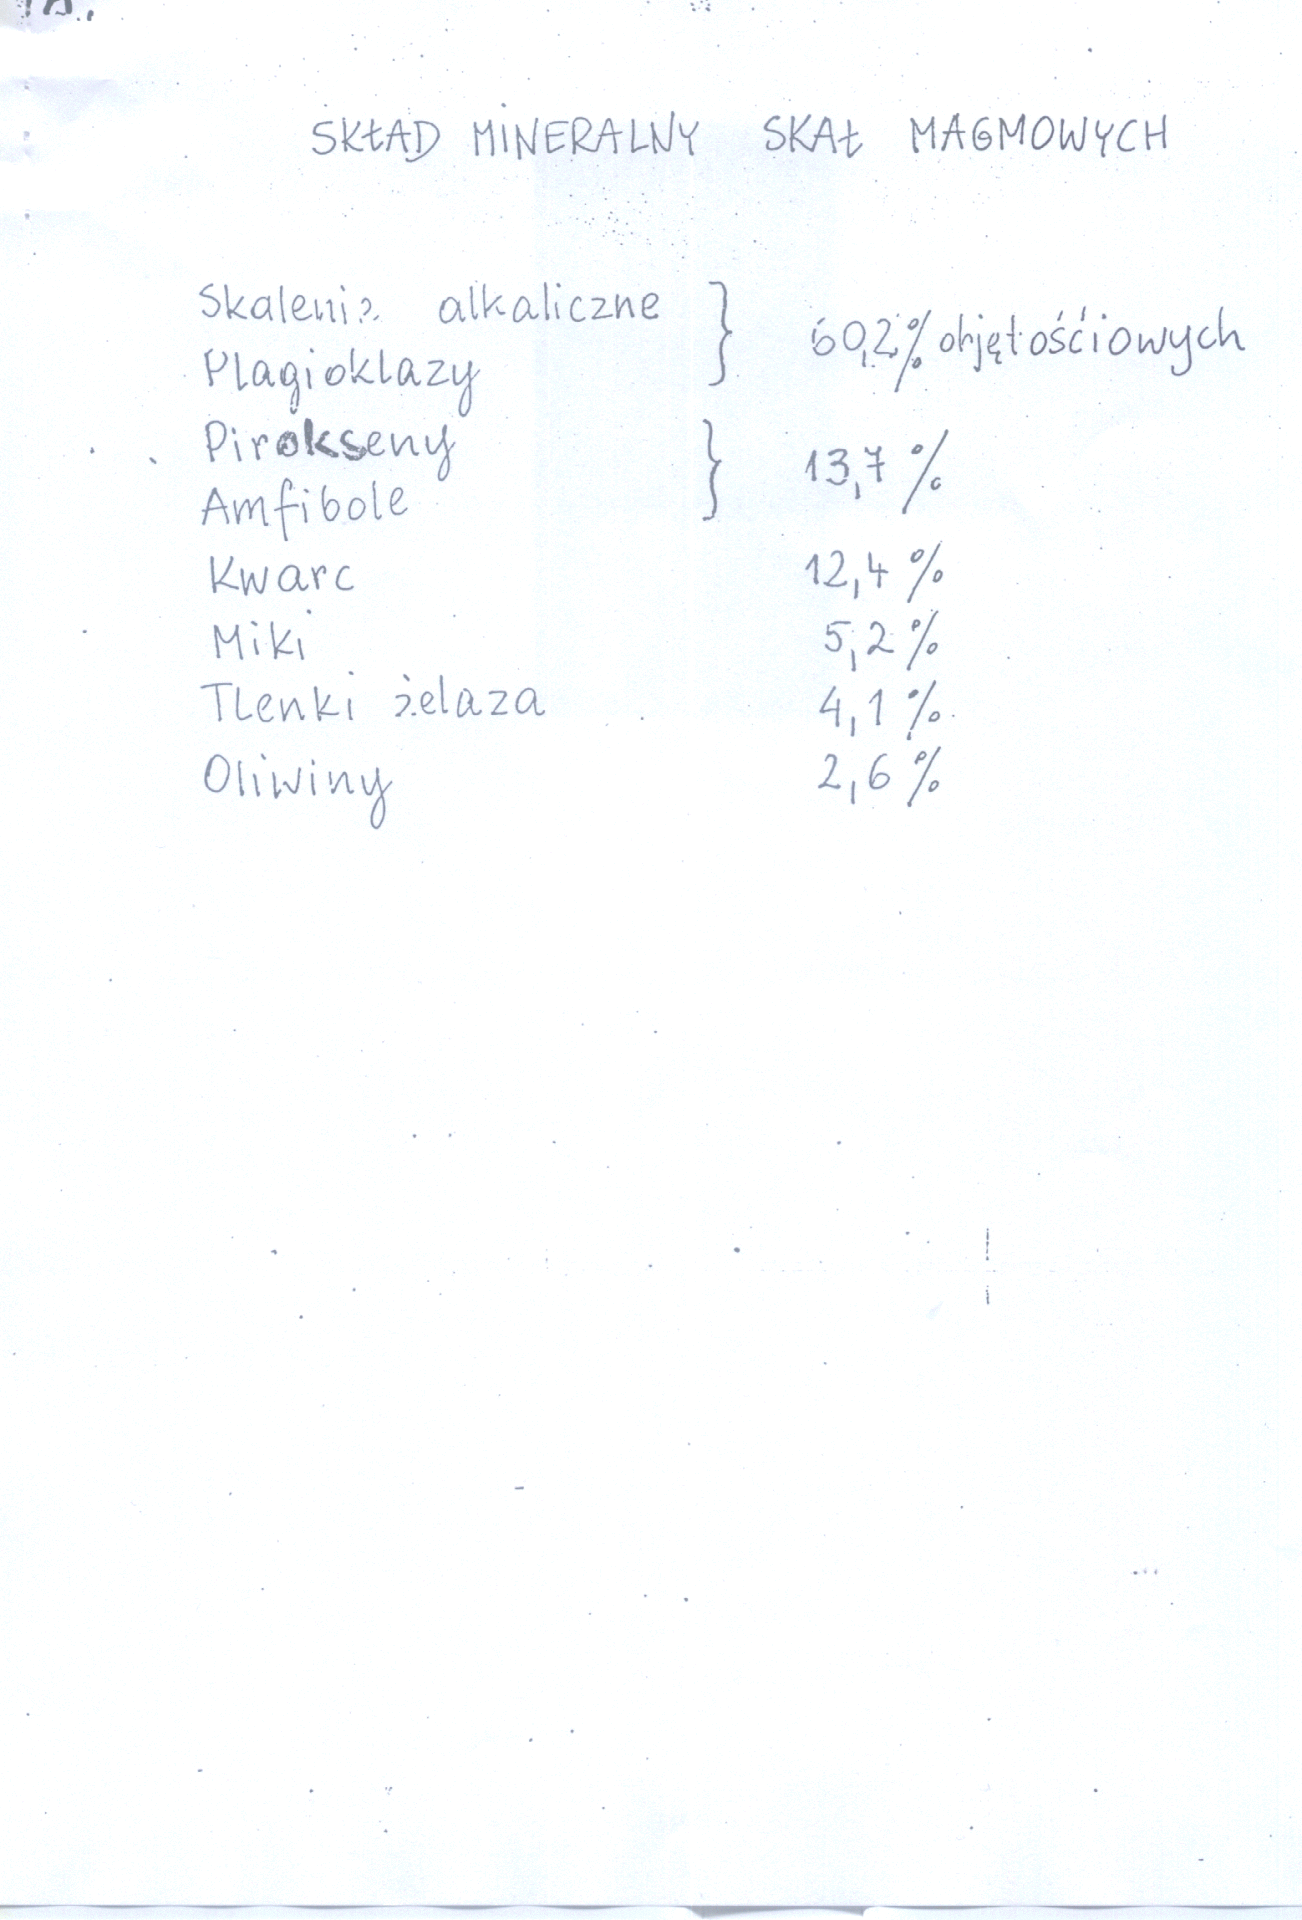 SKŁAD MINERALNY SKAŁ MAGMOWYCH
Skalenie alkaliczne
Plagioklazy
60,2% objętościowych
Pirokseny
Amfibole
13,7 %
Kwarc 12,4 %
Miki 5,2 %
Tlenki żelaza 4,1 %
Oliwiny 2,6 %